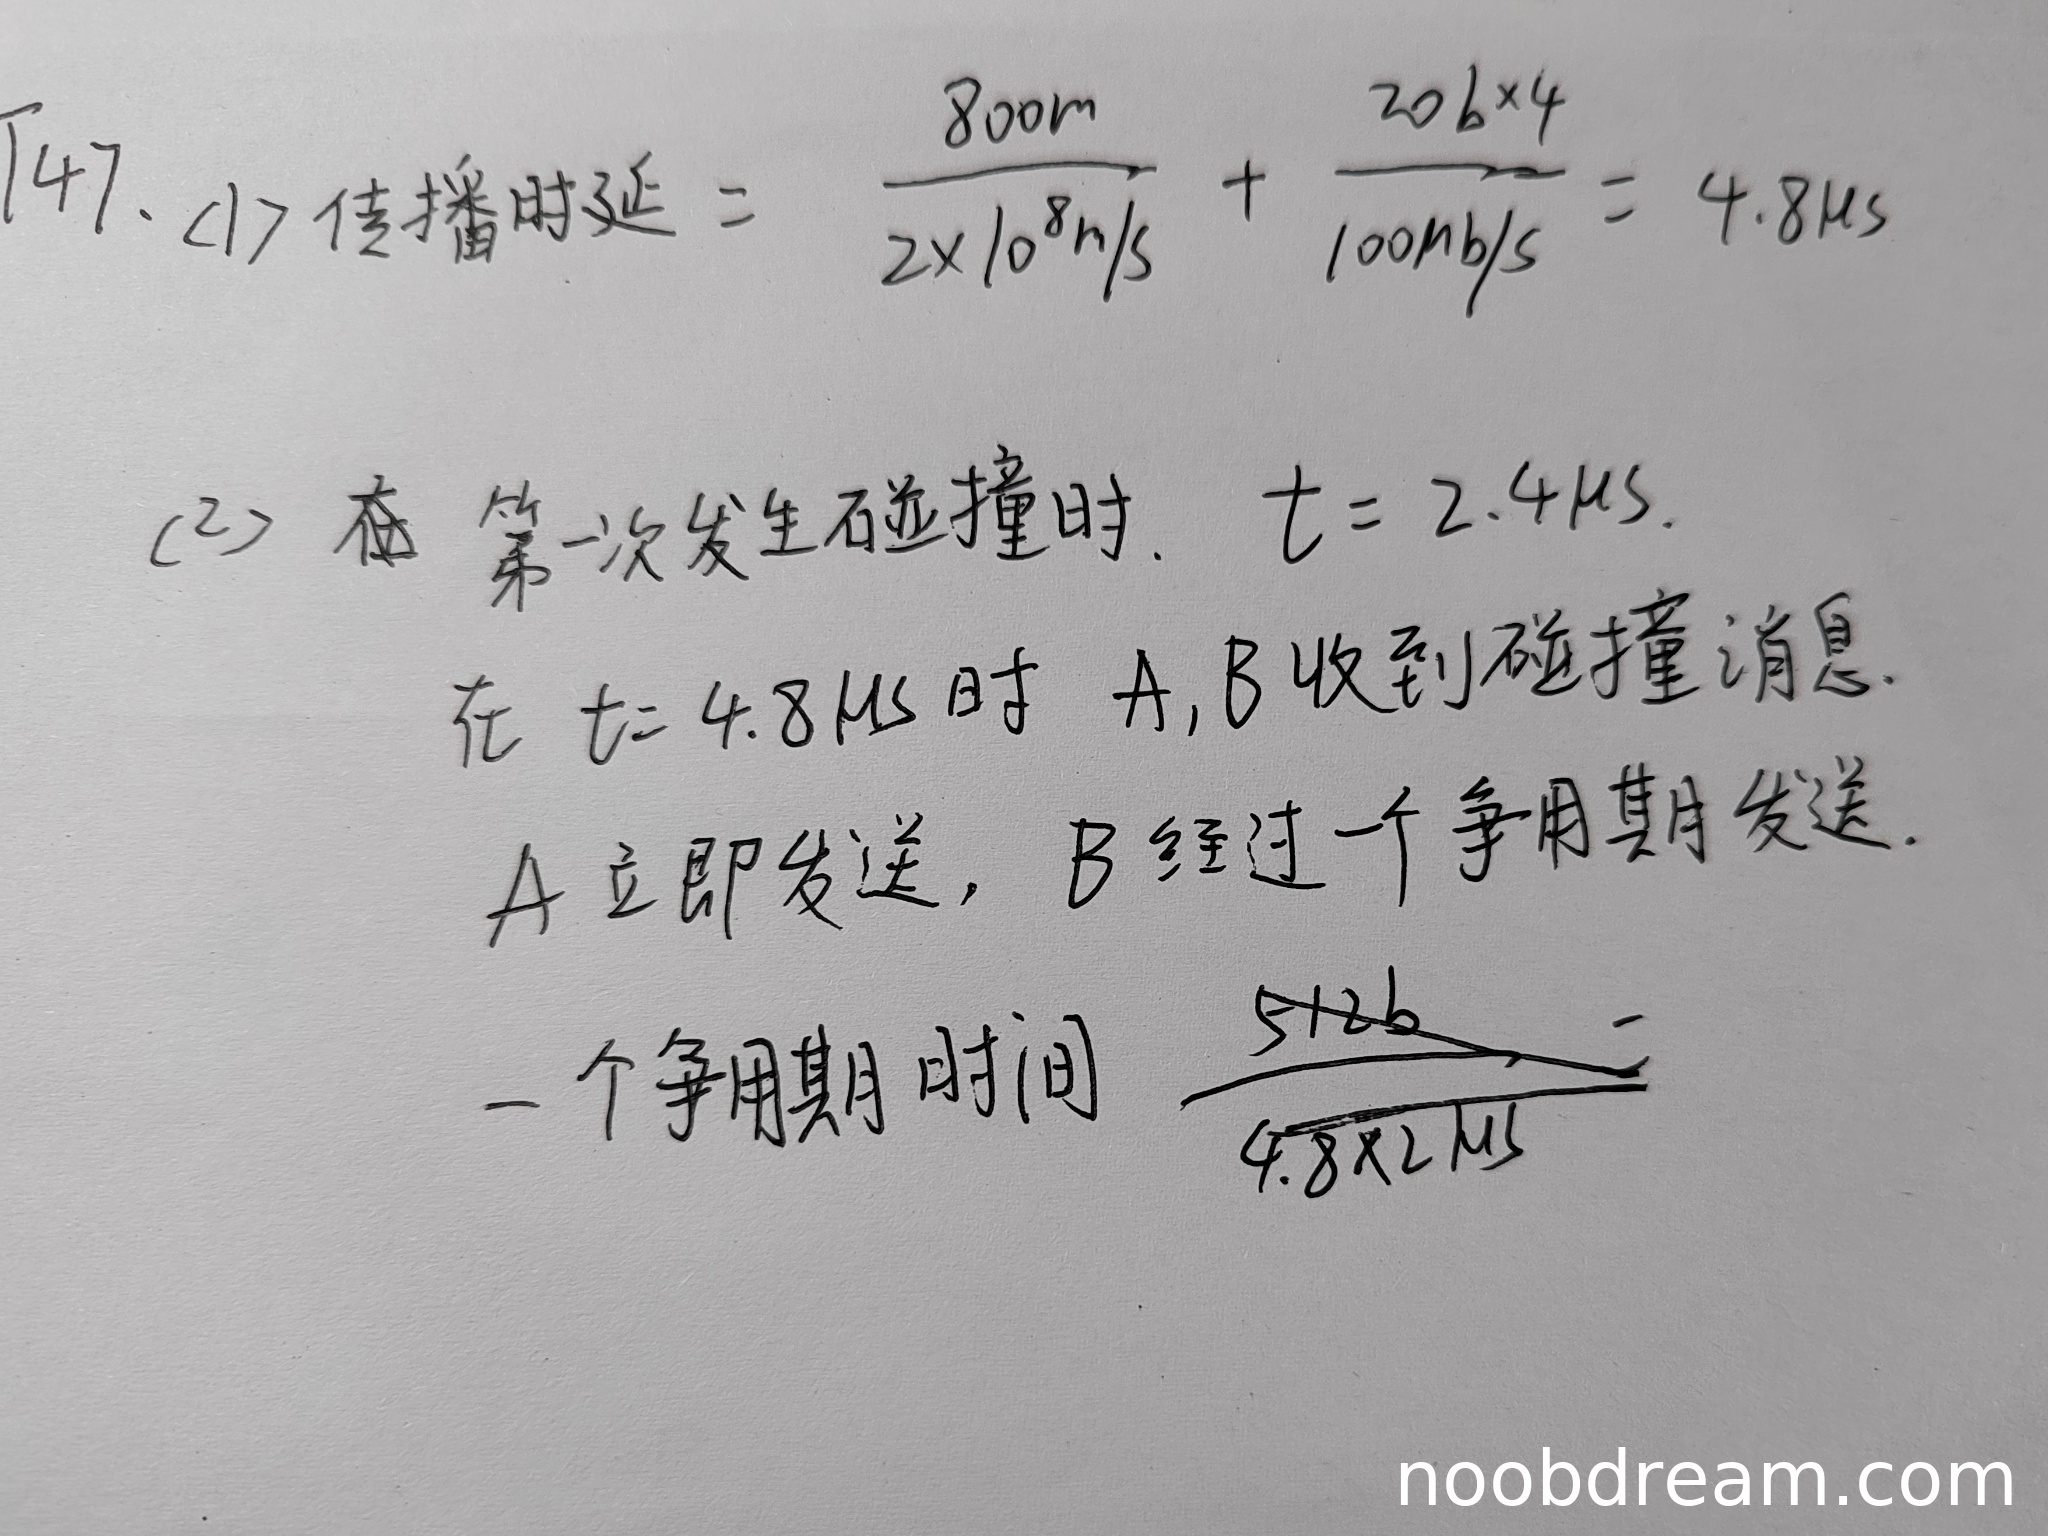 T47. (1) 传播时延 = 800m / 2×10⁸m/s + 20b×4 / 100Mb/s = 4.8μs
(2) 在 第一次发生碰撞时. t = 2.4μs.
在 t= 4.8μs时 A, B 收到碰撞消息.
A 立即发送, B 经过一个争用期发送.
一个争用期时间 512b / 4.8×2μs =
noobdream.com